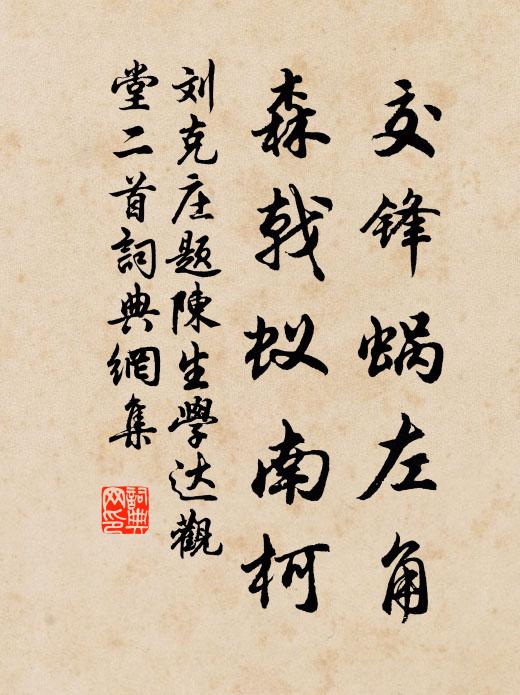 交锋蜗左角
森戟蚁南柯
刘克庄题陳生學达觀
堂二首詞典網集
詞典网印